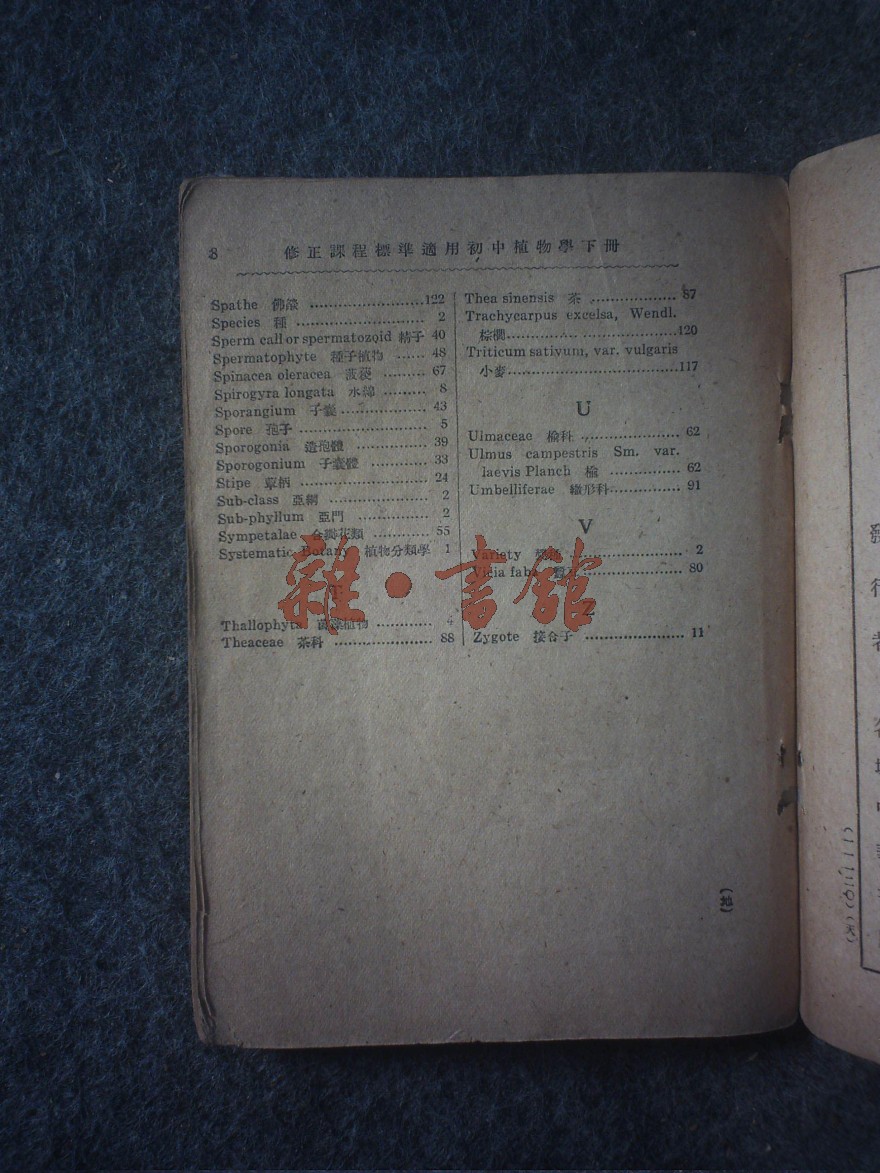 8 修正課程標準適用初中植物學下冊
Spathe 佛燄 ........................122
Species 種 ............................ 2
Sperm call or spermatozoid 精子 40
Spermatophyte 種子植物 ...... 48
Spinacea oleracea 菠薐 ......... 67
Spirogyra longata 水綿 ......... 8
Sporangium 子囊.................. 43
Spore 孢子 ........................... 5
Sporogonia 造孢體 ............... 39
Sporogonium 子囊體 ............ 33
Stipe 蕈柄 ........................... 24
Sub-class 亞綱 ..................... 2
Sub-phyllum 亞門 ............... 2
Sympetalae 合瓣花類 ............ 55
Systematic Botany 植物分類學 1
T
Thallophyta 菌藻植物 ............ 4
Theaceae 茶科 ..................... 88
Thea sinensis 茶 .................. 87
Trachycarpus excelsa, Wendl.
棕櫚....................................120
Triticum sativum, var. vulgaris
小麥....................................117
U
Ulmaceae 榆科 ..................... 62
Ulmus campestris Sm. var.
laevis Planch 榆 ............... 62
Umbelliferae 繖形科............... 91
V
Variety ........................ 2
Vicia faba ..................... 80
Z
Zygote 接合子 ..................... 11
(地)
雜·書館
發行者